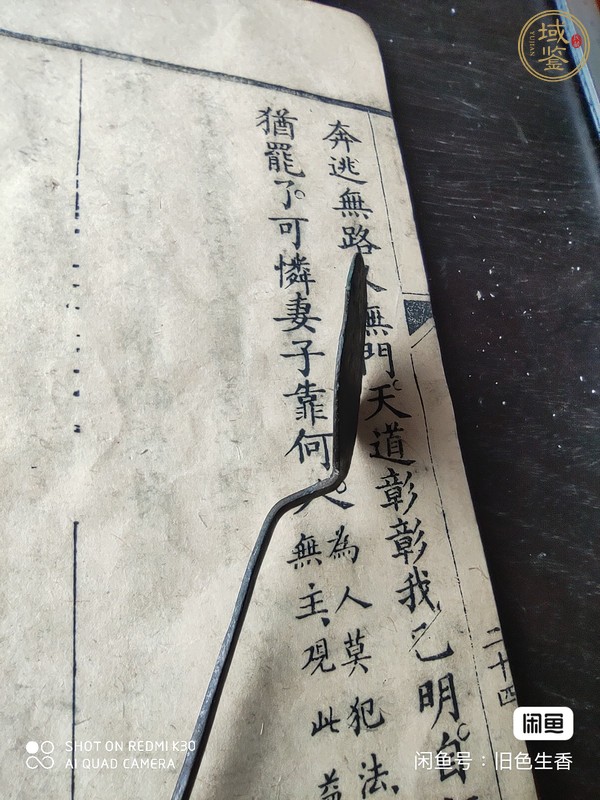 域鉴
YUJIAN
二十四
奔逃無路無門。天道彰彰我已明。自
猶罷了。可憐妻子靠何人。
為人莫犯法、
無主、覌此益
SHOT ON REDMI K30
AI QUAD CAMERA
闲鱼
闲鱼号：旧色生香